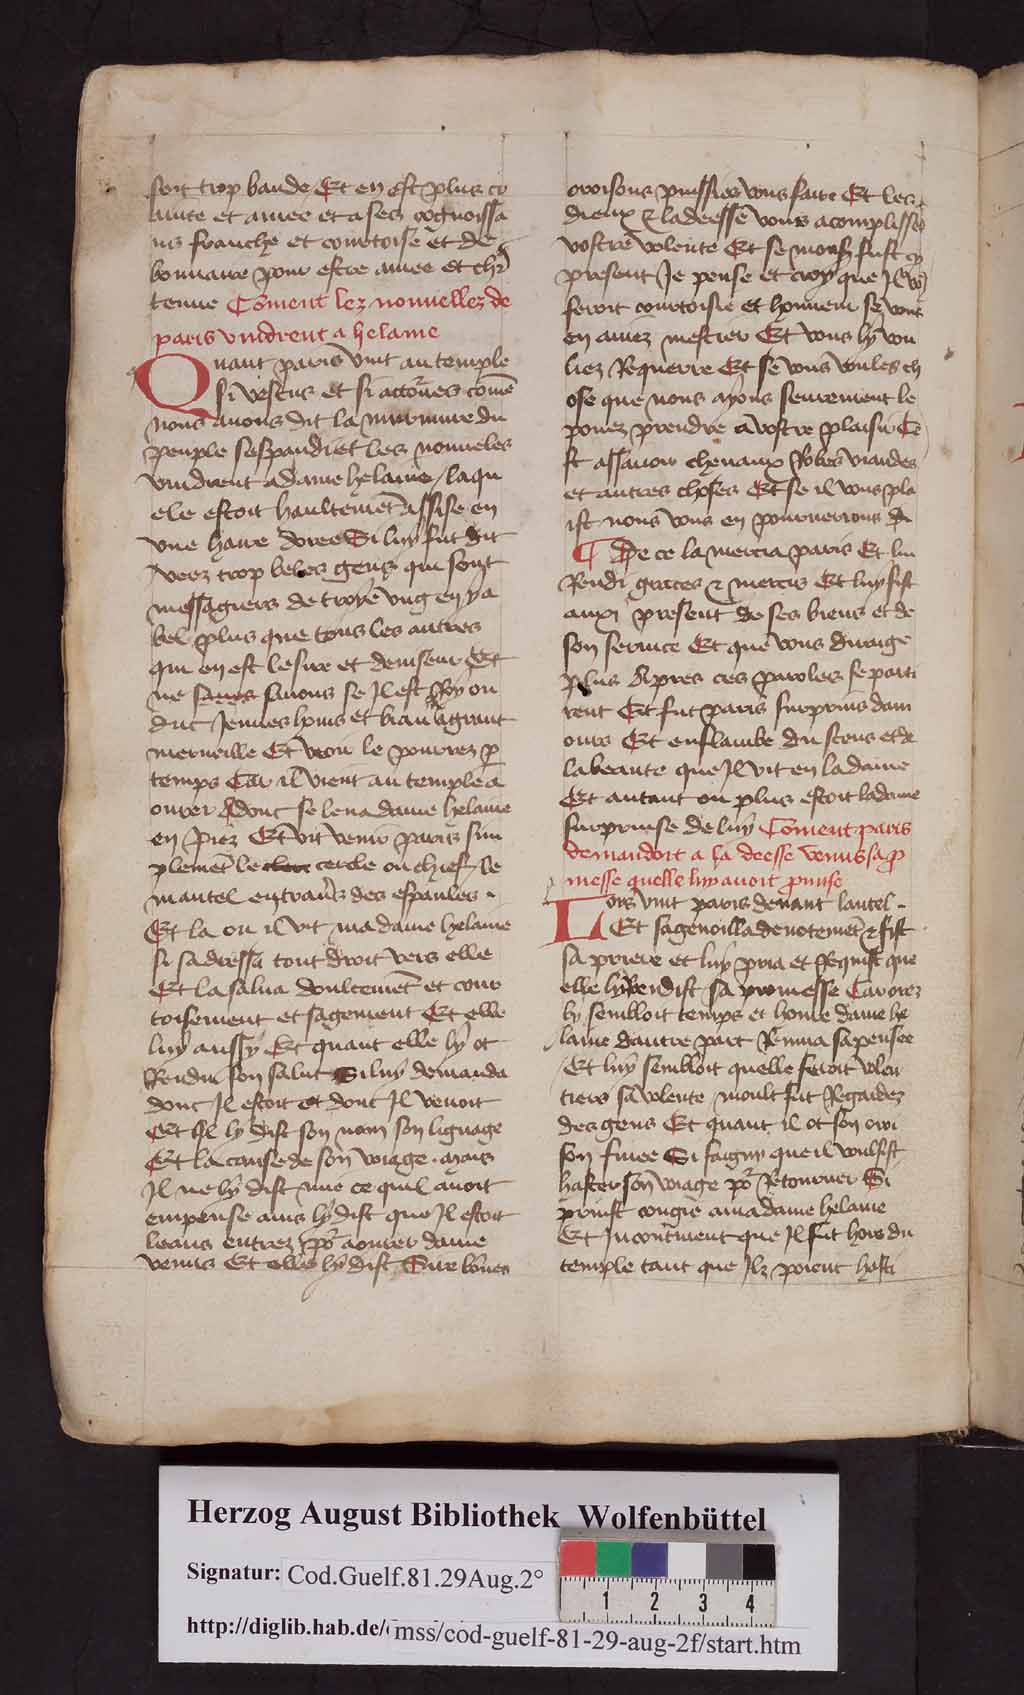 soit trop baude Et en est plus co
uute et amee et a ses cognoissa
ns franche et courtoise et de
bonnaire pour estre amee et chr̄
tenue Coment lez nouuellez de
paris vindrent a helaine
Quant paris vint au temple
si vestus et si attornes comē
nous auons dit la murmure du
peuple sespandi et les nouueles
vindrent a dame helaine / laqu
ele estoit haultemēt assise en
vne haire doree Si luy fut dit
veez trop beles gens qui sont
messagiers de troye vng en y a
bel plus que tous les autres
qui en est le sire et deuiseur Et
ne sauons se Il est Roy ou
duc Jeunes homs et biau a grant
merueille Et veoir le pourrez p
temps Car il vient au temple a
ourer Adonc se leua dame helaine
en piez Et vit venir paris sim
plemēt le cercle ou chief le
mantel entrauers des espaules .
Et la ou il vit ma dame helaine
si sadressa tout droit vers elle
Et la salua doulcemēt et cour
toisement et sagement Et elle
luy aussy Et quant elle ly ot
Rendu son salut Si luy demanda
dont Il estoit et dont Il venoit
Et Il ly dist son nom son lignage
Et la cause de son viage . mais
Il ne ly dist mie ce quil auoit
empense ains ly dist que Il estoit
leans entrez por aourer dame
venus Et elle ly dist Sire bōnes
oroisons puissies vous faire Et les
dieux & la deesse vous acomplisse
vostre volente Et se mons fust cy
present Je pense et croy que Il vo
feroit courtoisie et honneur se vous
en auiez mestier Et vous ly vou
liez Requerre Et se vous voules ch
ose que nous ayons seurement le
pouez prendre a vostre plaisir Ce
st assauoir cheuaux Robes viandes
et autres choses Et se il vous pla
ist nous vous en pouruerrons
¶ De ce la mercia paris Et lui
Rendi graces & mercis Et luy fist
auxi present de ses biens et de
son seruice Et que vous diroige
plus Apres ces paroles se parti
rent Et fut paris surprins dam
ours Et enflambe du scens et de
la beaute que Il vit en la dame
Et autant ou plus estoit la dame
surprinse de luy Coment paris
demandoit a la deesse venus sa p
messe quelle luy auoit prinse
Lors vint paris deuant lautel .
Et sagenoilla deuotemēt & fist
sa priere et luy pria et Requist que
elle ly Rendist sa promesse Car orez
ly sembloit temps et heure dame he
laine dautre part Remua sa pensee
Et luy sembloit quelle feroit volen
tiers sa volente moult fut Regardez
des gens Et quant il ot son oroi
son finee Si faigny que il voulsist
haster son viage por Retourner Si
prinst congie a ma dame helaine
Et Incontinent que Il fut hors du
temple tant que Ilz poient hasti
Herzog August Bibliothek Wolfenbüttel
Signatur: Cod.Guelf.81.29Aug.2°
http://diglib.hab.de/mss/cod-guelf-81-29-aug-2f/start.htm
1 2 3 4